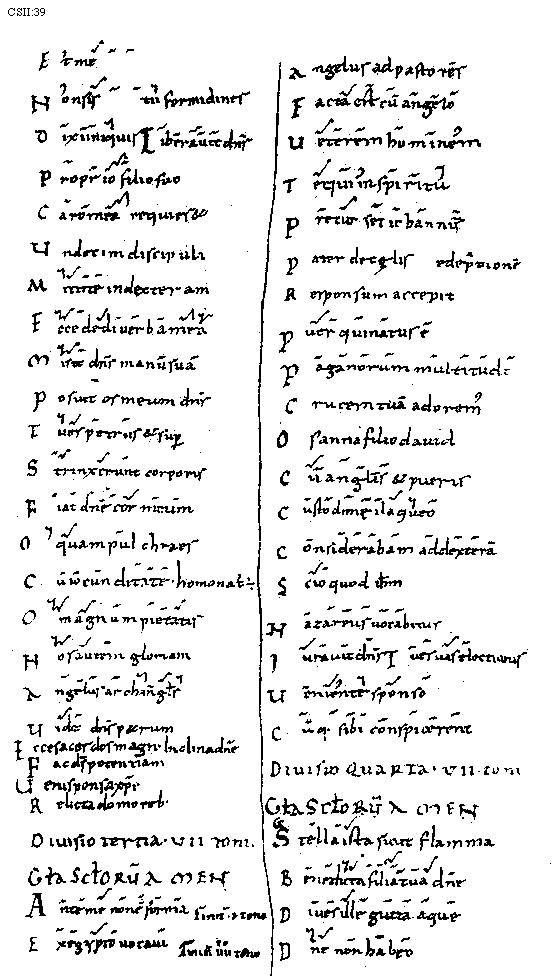 CSII:39
E t me
N on sis tu formidines
D ixi iniquis Liberavit dns
P roprio filio suo
C aro mea requiescet
U ndecim discipuli
M ittite in dexteram
E cce dedi verba mea
M isit dns manu sua
P osuit os meum dns
T u es petrus & sup
S trinxerunt corporis
F iat dne cor meum
O quam pulchra es
C u iocunditate homo nat
O magnum pietatis
N os autem gloriam
A ngelus archangelis
U idit dns petrum
Ecce sacerdos magn Inclina dne
F ac ds potentiam
U eni sponsa xpi
R elicta domo reb
Divisio tertia VII toni
Gla SctoRu AMEN
A nte me non e formia
E x egypto vocavi
A ngelus ad pastores
F acta est cu angelo
U eterem hominem
T e qui in spiritu
P reciosi
P ater de celis redeptione
R esponsum accepit
P uer qui natus e
P aganorum multitudi
C rucem tua adorem
O sanna filio david
C u angelis & pueris
C ustodi me a laqueo
C onsiderabam ad dextera
S cio quod ihm
N azareus vocabitur
I uravit dns
U eniente sponso
C uq sibi conspicerent
Divisio QUARTA VII toni
Gla SctoRu AMEN
S tella ista sicut flamma
B enedicta filia tua dne
D ives ille gutta aque
D ne non habeo